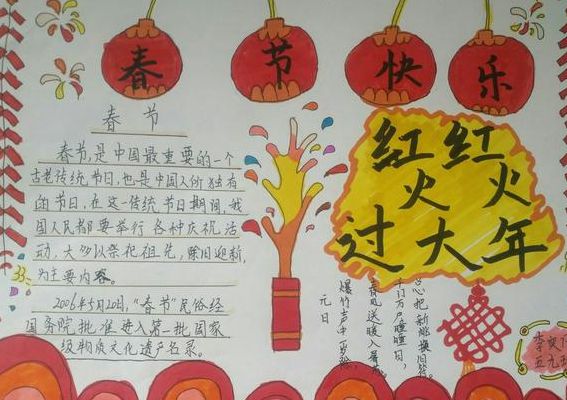 春节快乐
春节
春节,是中国最重要的一个
古老传统节日,也是中国人所独有
的节日,在这一传统节日期间,我
国人民都要举行各种庆祝活
动,大多以祭祀祖先,除旧迎新,
为主要内容。
2006年5月20日,“春节”民俗经
国务院批准进入第一批国家
级物质文化遗产名录。
红红
火火
过大年
元日
爆竹声中一岁除,
春风送暖入屠苏。
千门万户曈曈日,
把新桃换旧符。